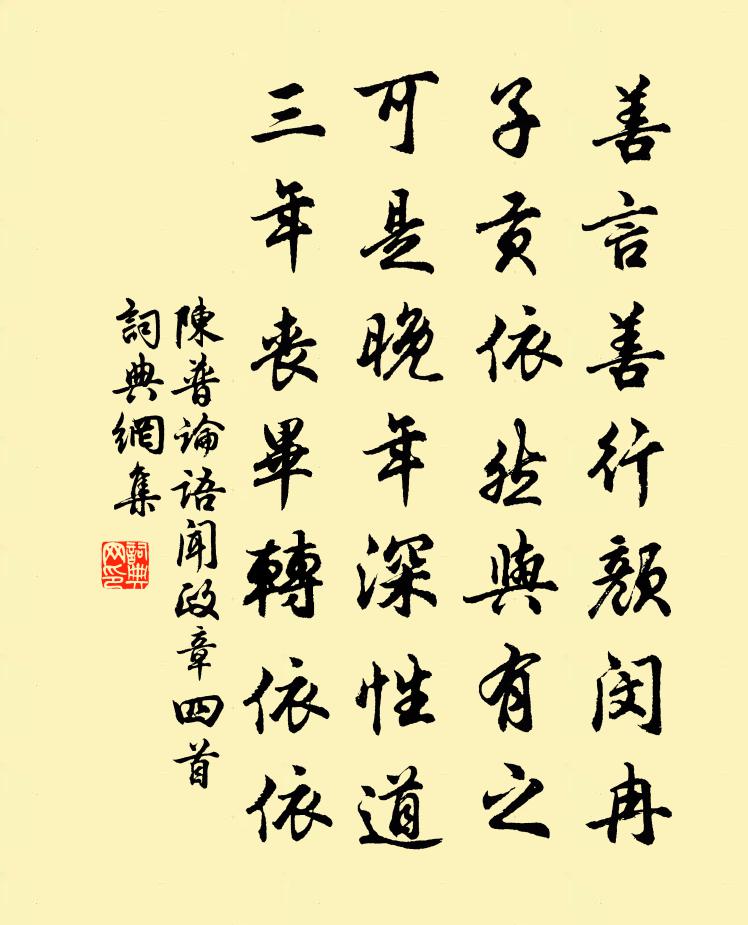 善言善行顏閔冉
子貢依然與有之
可是晚年深性道
三年喪畢轉依依
陳普論語聞政章四首
詞典網集
詞典网印